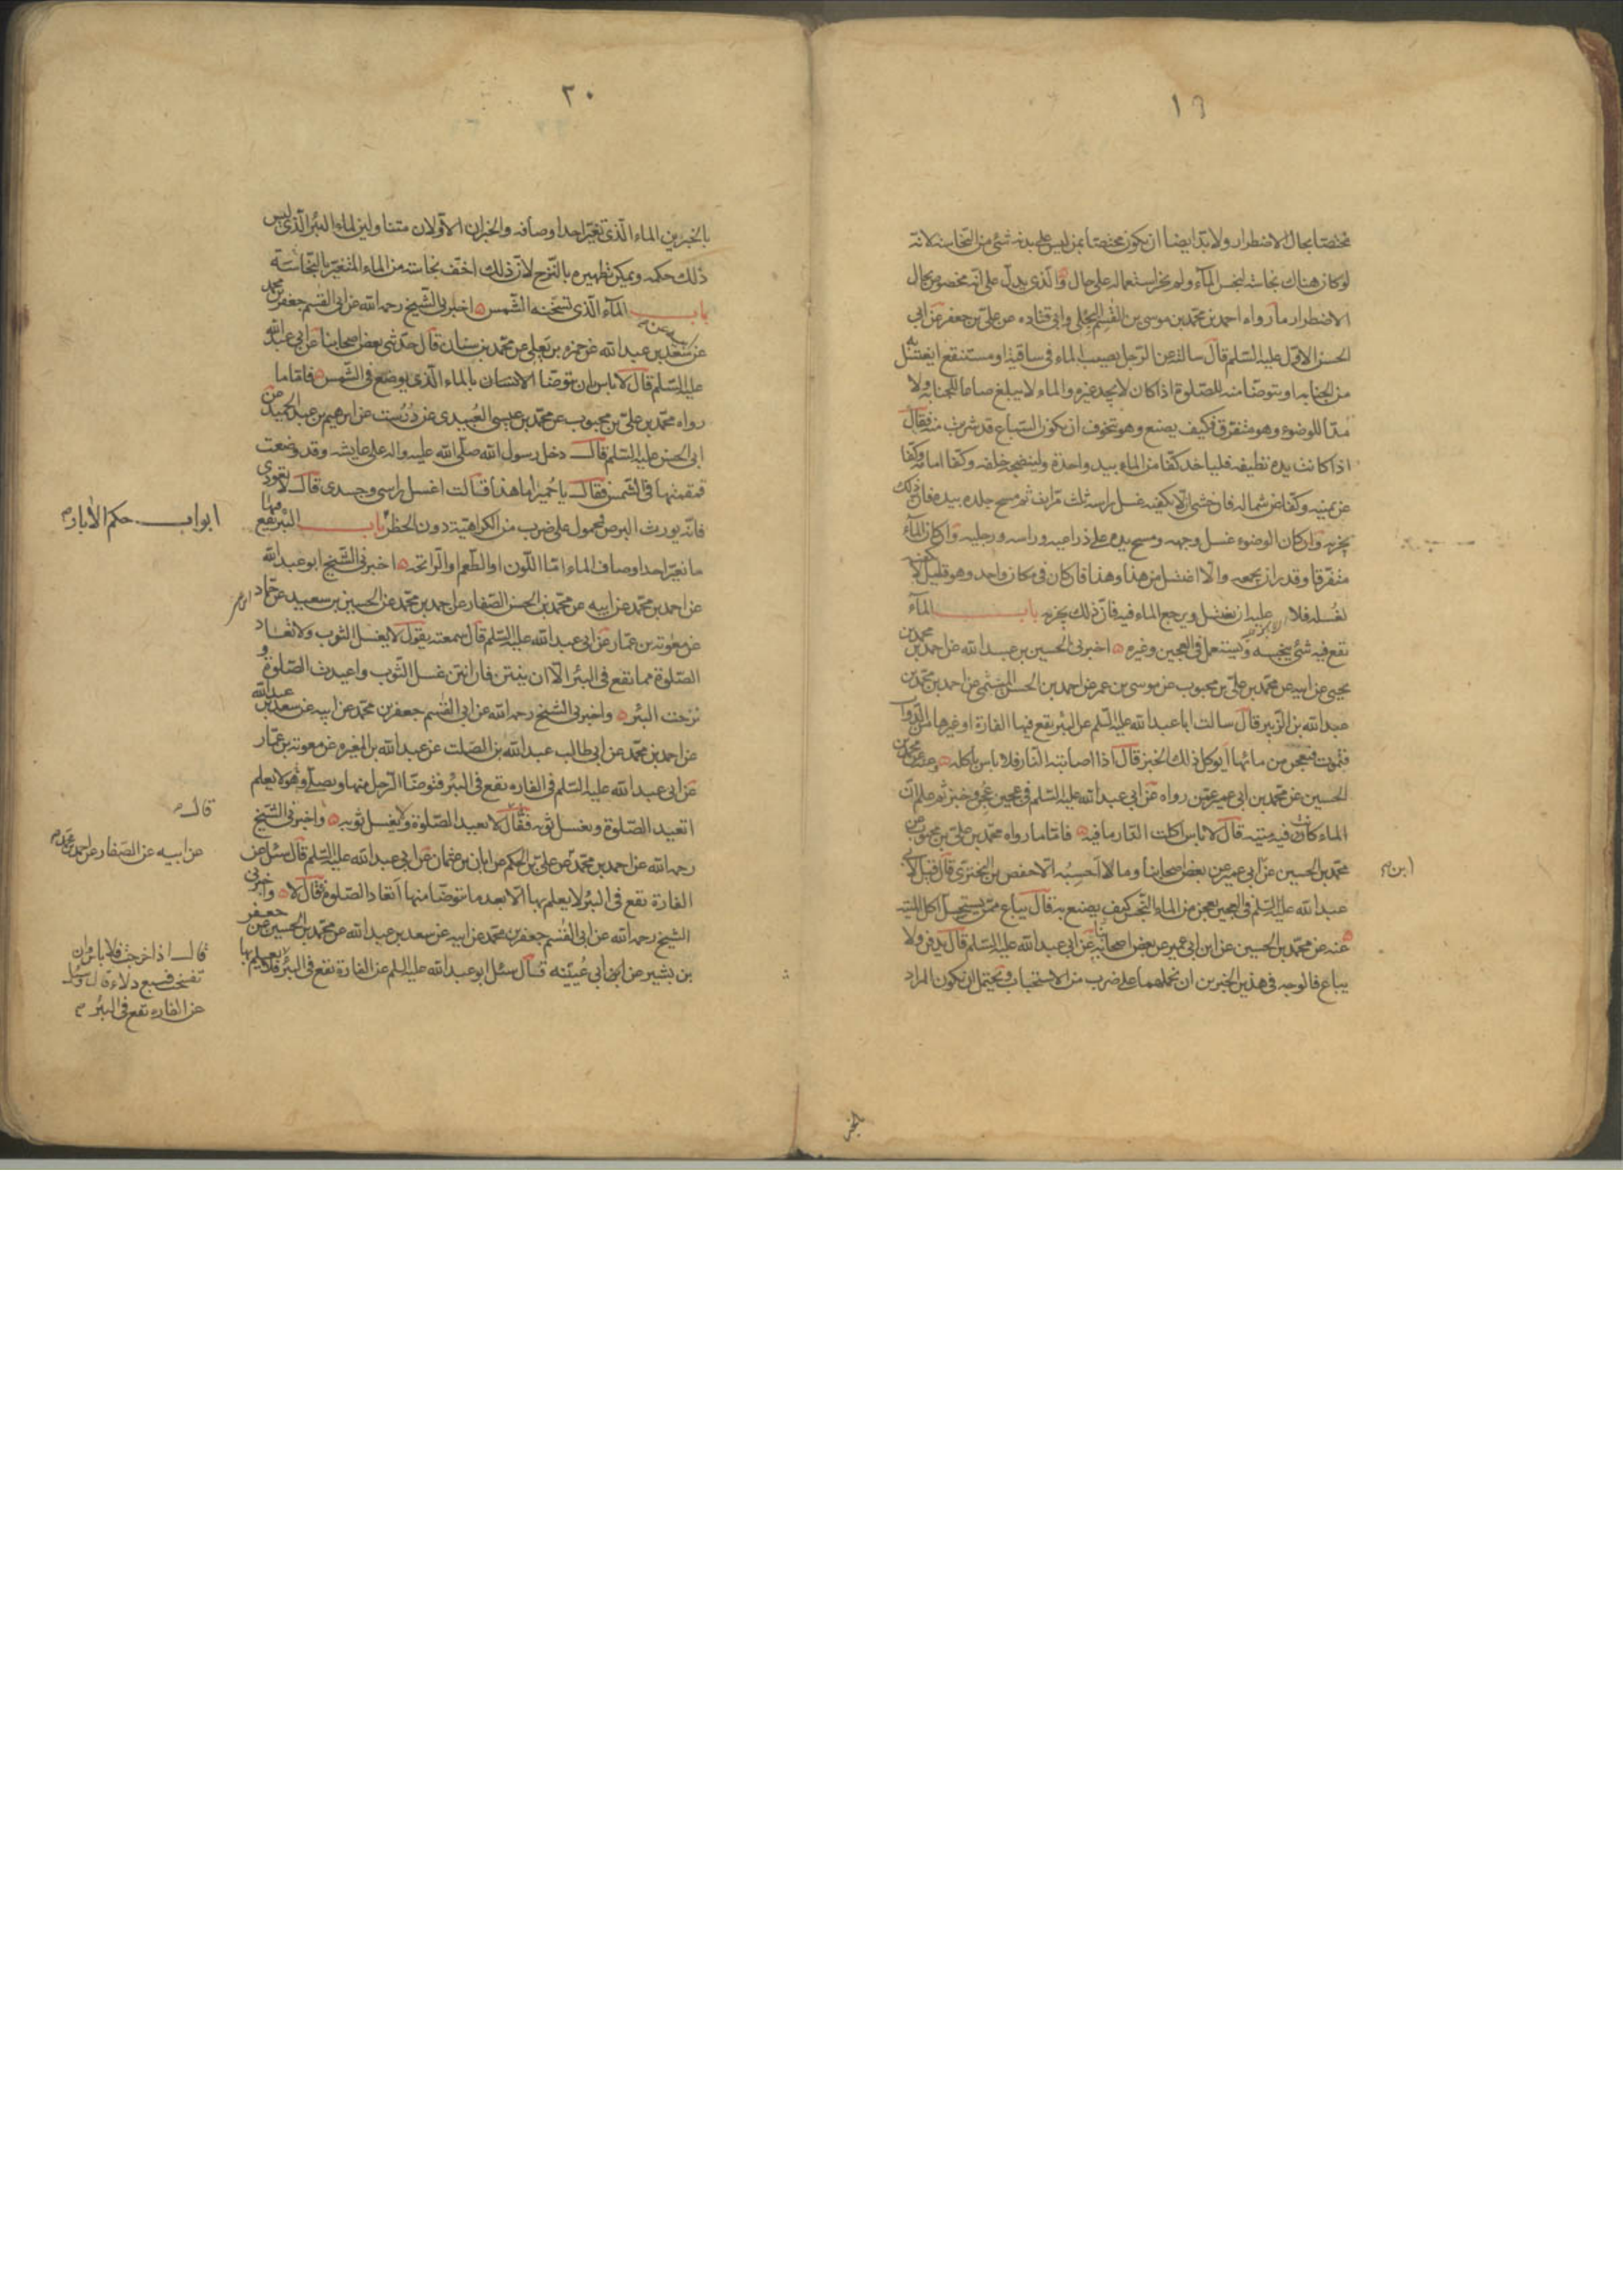 ١٩
مختصا بحال الاضطرار ولا بد ايضا ان يكون مختصا بمن ليس على بدنه شئ من النجاسة لانه
لو كان هناك نجاسة لنجس الماء ولم يجز استعماله على حال والذى يدل على انه مخصوص بحال
الاضطرار ما رواه احمد بن محمد بن موسى بن القسم البجلى وابى قتاده عن على بن جعفر عن ابى
الحسن الاول عليه السلم قال سالته عن الرجل يصيب الماء فى ساقية او مستنقع ايغتسل
من الجنابه او يتوضا منه للصلوة اذا كان لا يجد غيره والماء لا يبلغ صاعا للجنابه ولا
مدا للوضوء وهو متفرق فكيف يصنع وهو يتخوف ان يكون السباع قد شربت منه فقال
اذا كانت يده نظيفه فلياخذ كفا من الماء بيد واحدة ولينضحه خلفه وكفا امامه وكفا
عن يمينه وكفا عن شماله فان خشى ان لا يكفيه غسل راسه ثلث مرات ثم مسح جلده بيده فان ذلك
يجزيه وان كان الوضوء غسل وجهه ومسح يده على ذراعيه وراسه ورجليه وان كان الماء
متفرقا وقدر ان يجمعه والا اغتسل من هذا وهذا فان كان فى مكان واحد وهو قليل لا يكفيه
لغسله فلا عليه ان يغتسل ويرجع الماء فيه فان ذلك يجزيه باب الماء
يقع فيه شئ ينجسه ويستعمل فى العجين وغيره اخبرنى الحسين بن عبد الله عن احمد بن محمد بن
يحيى عن ابيه عن محمد بن على بن محبوب عن موسى بن عمر عن احمد بن الحسن الميثمى عن احمد بن محمد بن
عبد الله بن الزبير قال سالت ابا عبد الله عليه السلم عن البئر يقع فيها الفارة او غيرها من الدواب
فتموت فيعجن من مائها ايوكل ذلك الخبز قال اذا اصابته النار فلا باس باكله وعنه عن محمد بن
الحسين عن محمد بن ابى عمير عمن رواه عن ابى عبد الله عليه السلم فى عجين عجن وخبز ثم علم ان
الماء كانت فيه ميته قال لا باس اكلت النار ما فيه فاما ما رواه محمد بن على بن محبوب عن
محمد بن الحسين عن ابى عمير عن بعض اصحابنا وما لا احسبه الا حفص بن البخترى قال قيل لابى
ابن
عبد الله عليه السلم فى العجين يعجن من الماء النجس كيف يصنع به قال يباع ممن يستحل اكل الميتة
عنه عن محمد بن الحسين عن ابن ابى عمير عن بعض اصحابنا عن ابى عبد الله عليه السلم قال يدفن ولا
يباع فالوجه فى هذين الخبرين ان نحملهما على ضرب من الاستحباب ويحتمل ان يكون المراد
٢٠
بالخبرين الماء الذى تغير احد اوصافه والخبران الاولان متناولين لماء البئر الذى ليس
ذلك حكمه ويمكن تطهيره بالنزح لان ذلك اخف نجاسة من الماء المتغير بالنجاسة
باب الماء الذى تسخنه الشمس اخبرنى الشيخ رحمه الله عن ابى القسم جعفر بن محمد
عن سعد بن عبد الله عن حمزه بن يعلى عن محمد بن سنان قال حدثنى بعض اصحابنا عن ابى عبد الله
عليه السلم قال لا باس ان يتوضا الانسان بالماء الذى يوضع فى الشمس فاما ما
رواه محمد بن على بن محبوب عن محمد بن عيسى العبيدى عن درست عن ابرهيم بن عبد الحميد عن
ابى الحسن عليه السلم قال دخل رسول الله صلى الله عليه واله على عايشه وقد وضعت
قمقمتها فى الشمس فقال يا حميراء ما هذا فقالت اغسل راسى وجسدى قال لا تعودى
فانه يورث البرص فمحمول على ضرب من الكراهية دون الحظر باب البئر يقع فيها
ابواب حكم الابار
ما تغير احد اوصاف الماء اما اللون او الطعم او الرائحه اخبرنى الشيخ ابو عبد الله
عن احمد بن محمد عن ابيه عن محمد بن الحسن الصفار عن احمد بن محمد عن الحسين بن سعيد عن حماد
عن معوية بن عمار عن ابى عبد الله عليه السلم قال سمعته يقول لا يغسل الثوب ولا تعاد
الصلوة مما يقع فى البئر الا ان ينتن فان انتن غسل الثوب واعيدت الصلوة و
نزحت البئر واخبرنى الشيخ رحمه الله عن ابى القسم جعفر بن محمد عن ابيه عن سعد بن عبد الله
عن احمد بن محمد عن ابى طالب عبد الله بن الصلت عن عبد الله بن المغيره عن معوية بن عمار
عن ابى عبد الله عليه السلم فى الفاره يقع فى البئر فتوضا الرجل منها ويصلى وهو لا يعلم
اتعيد الصلوة ويغسل ثوبه فقال لا يعيد الصلوة ولا يغسل ثوبه واخبرنى الشيخ
قال
رحمه الله عن احمد بن محمد عن على بن الحكم عن ابان بن عثمان عن ابى عبد الله عليه السلم قال سئل عن
عن ابيه عن الصفار عن احمد بن محمد
الفارة يقع فى البئر لا يعلم بها الا بعد ما توضا منها اتعاد الصلوة فقال لا واخبرنى
الشيخ رحمه الله عن ابى القسم جعفر بن محمد عن ابيه عن سعد بن عبد الله عن محمد بن الحسين عن جعفر
بن بشير عن ابى عيينه قال سئل ابو عبد الله عليه السلم عن الفارة تقع فى البئر فلا يعلم بها
قال اذا خرجت فلا باس وان
تفسخت فسبع دلاء قال وسئل
عن الفاره تقع فى البئر
الخبر